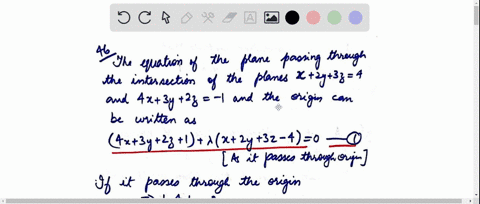 46
The equation of the plane passing through
the intersection of the planes x+2y+3z=4
and 4x+3y+2z=-1 and the origin can
be written as
(4x+3y+2z+1)+λ(x+2y+3z-4)=0 —①
[As it passes through origin]
If it passes through the origin